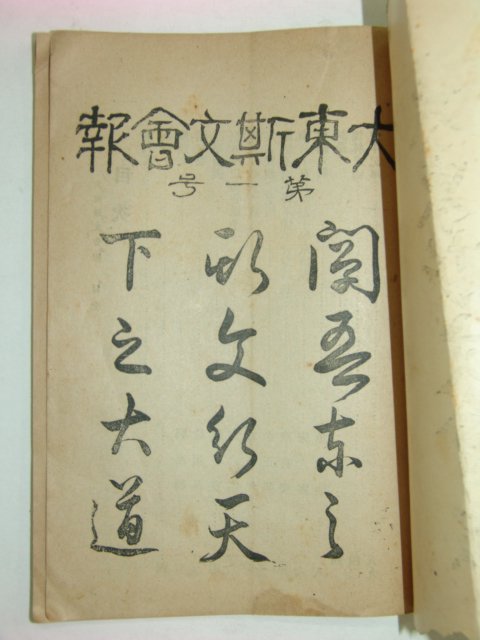 大東斯文會報
第一号
闡吾東之
斯文行天
下之大道